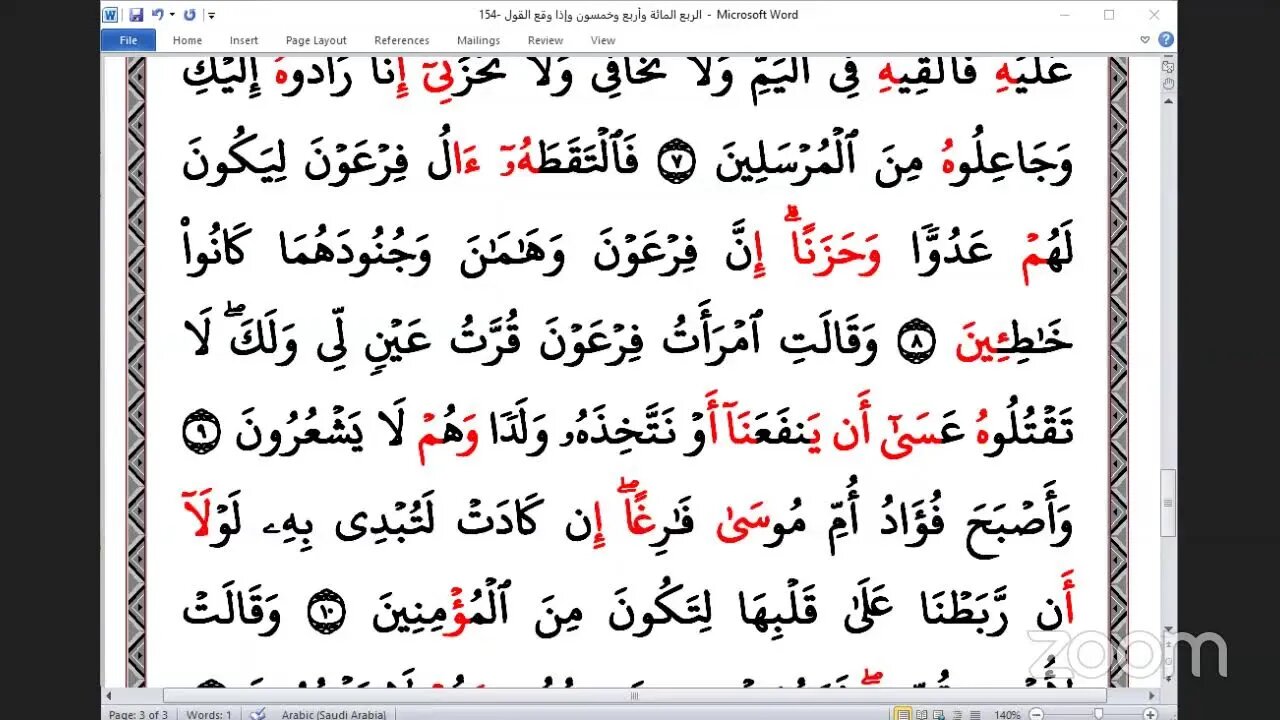 الربع المائة وأربع وخمسون وإذا وقع القول -154 - Microsoft Word
File Home Insert Page Layout References Mailings Review View
عَلَيۡهِ فَأَلۡقِيهِ فِي ٱلۡيَمِّ وَلَا تَخَافِي وَلَا تَحۡزَنِيٓ إِنَّا رَآدُّوهُ إِلَيۡكِ
وَجَاعِلُوهُ مِنَ ٱلۡمُرۡسَلِينَ ٧ فَٱلۡتَقَطَهُۥٓ ءَالُ فِرۡعَوۡنَ لِيَكُونَ
لَهُمۡ عَدُوّٗا وَحَزَنًاۗ إِنَّ فِرۡعَوۡنَ وَهَٰمَٰنَ وَجُنُودَهُمَا كَانُواْ
خَٰطِـِٔينَ ٨ وَقَالَتِ ٱمۡرَأَتُ فِرۡعَوۡنَ قُرَّتُ عَيۡنٖ لِّي وَلَكَۖ لَا
تَقۡتُلُوهُ عَسَىٰٓ أَن يَنفَعَنَآ أَوۡ نَتَّخِذَهُۥ وَلَدٗا وَهُمۡ لَا يَشۡعُرُونَ ٩
وَأَصۡبَحَ فُؤَادُ أُمِّ مُوسَىٰ فَٰرِغًاۖ إِن كَادَتۡ لَتُبۡدِي بِهِۦ لَوۡلَآ
أَن رَّبَطۡنَا عَلَىٰ قَلۡبِهَا لِتَكُونَ مِنَ ٱلۡمُؤۡمِنِينَ ١٠ وَقَالَتۡ
zoom
Page: 3 of 3 Words: 1 Arabic (Saudi Arabia) 140%